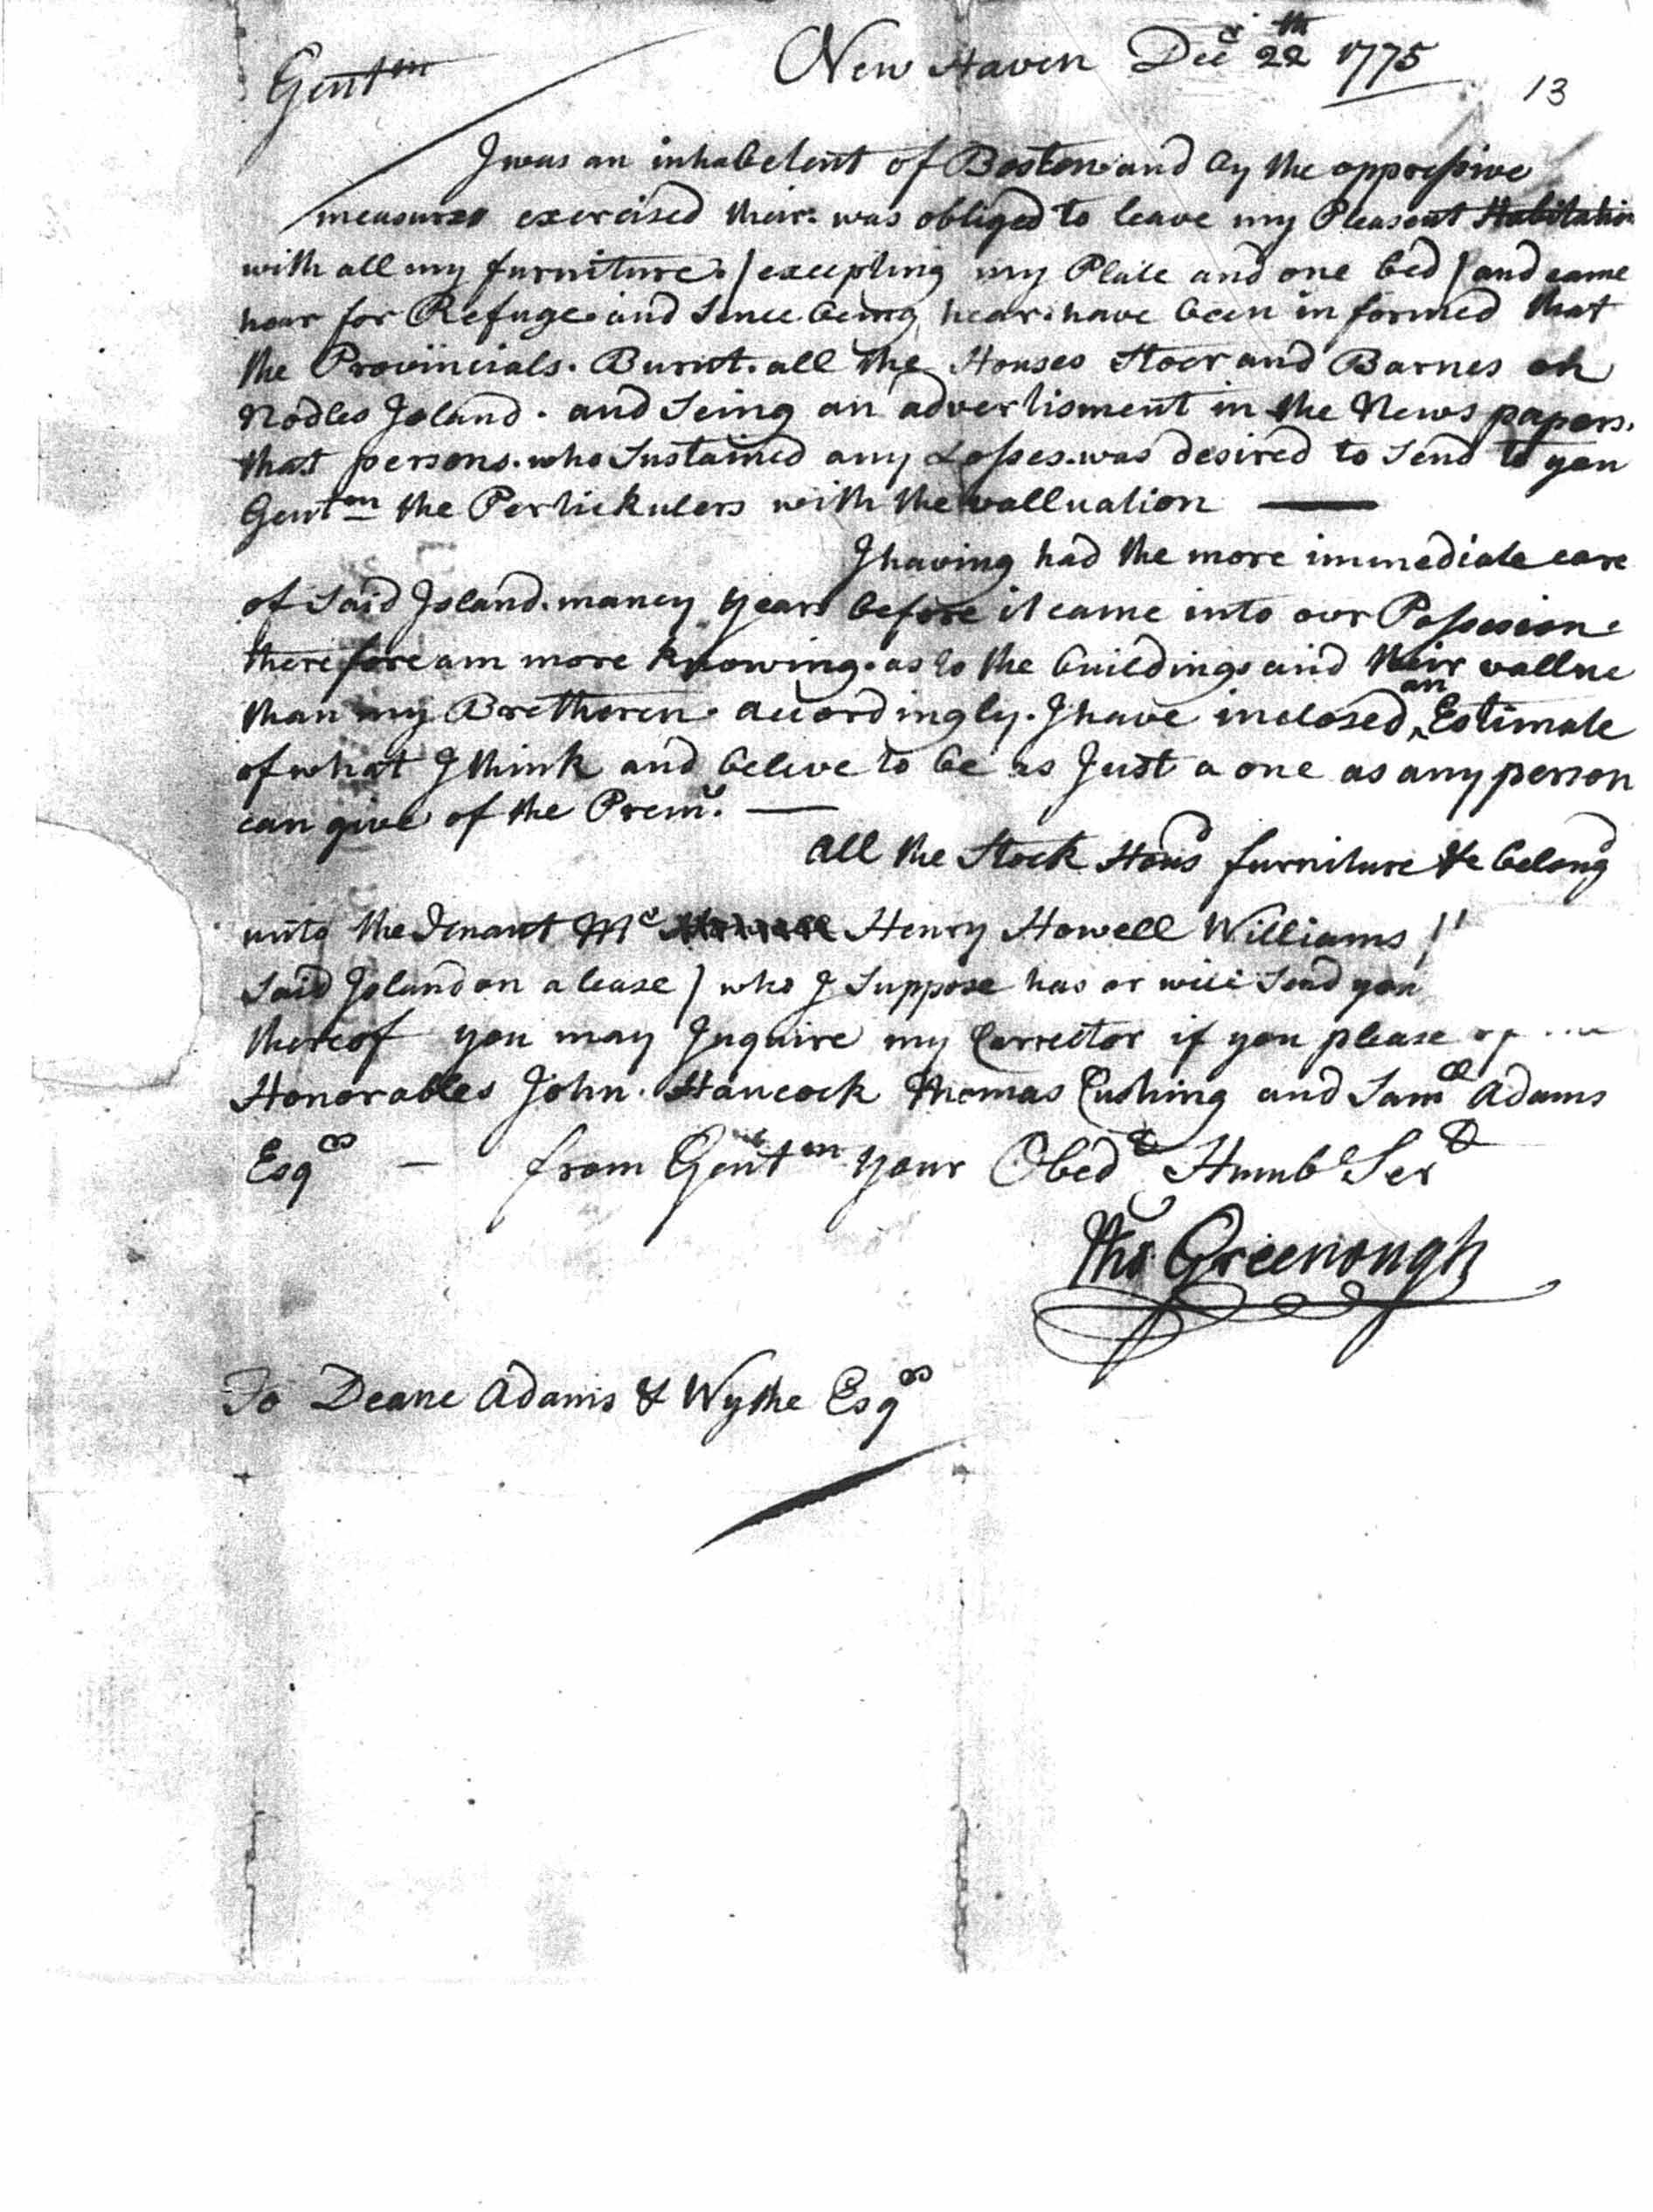 New Haven Decr 22th 1775
13
Gentmn
I was an inhabetent of Boston and by the oppressive
measures exercised their. was obliged to leave my Pleasent Habitation
with all my furniture. / excepting my Plate and one bed / and came
hear for Refuge and Since being hear. have been in formed that
the Provincials. Burnt. all the Houses Stoer and Barnes on
Nodles Island. and Seing an advertisment in the News papers.
that persons. who Sustained any Losses. was desired to Send to you
Gentmn the Pertickulers with the valluation —
I having had the more immediate care
of Said Island. maney years before it came into our Possesion.
therefore am more knowing. as to the buildings and their vallue
than my Bretheren. accordingly. I have inclosed an Estimate
of what I think and belive to be as Just a one as any person
can give of the Prems. —
all the Stock Housd furniture &c belong
unto the Tenant Mr Henry Howell Williams /
Said Island on a lease ) who I Suppose has or will Send you
thereof you may Inquire my Carrector if you please
Honorables John. Hancock Thomas Cushing and Samll Adams
Esqrs — from Gentmn your Obedt Humbl Sert
Thos Greenough
To Deane Adams & Wythe Esqrs